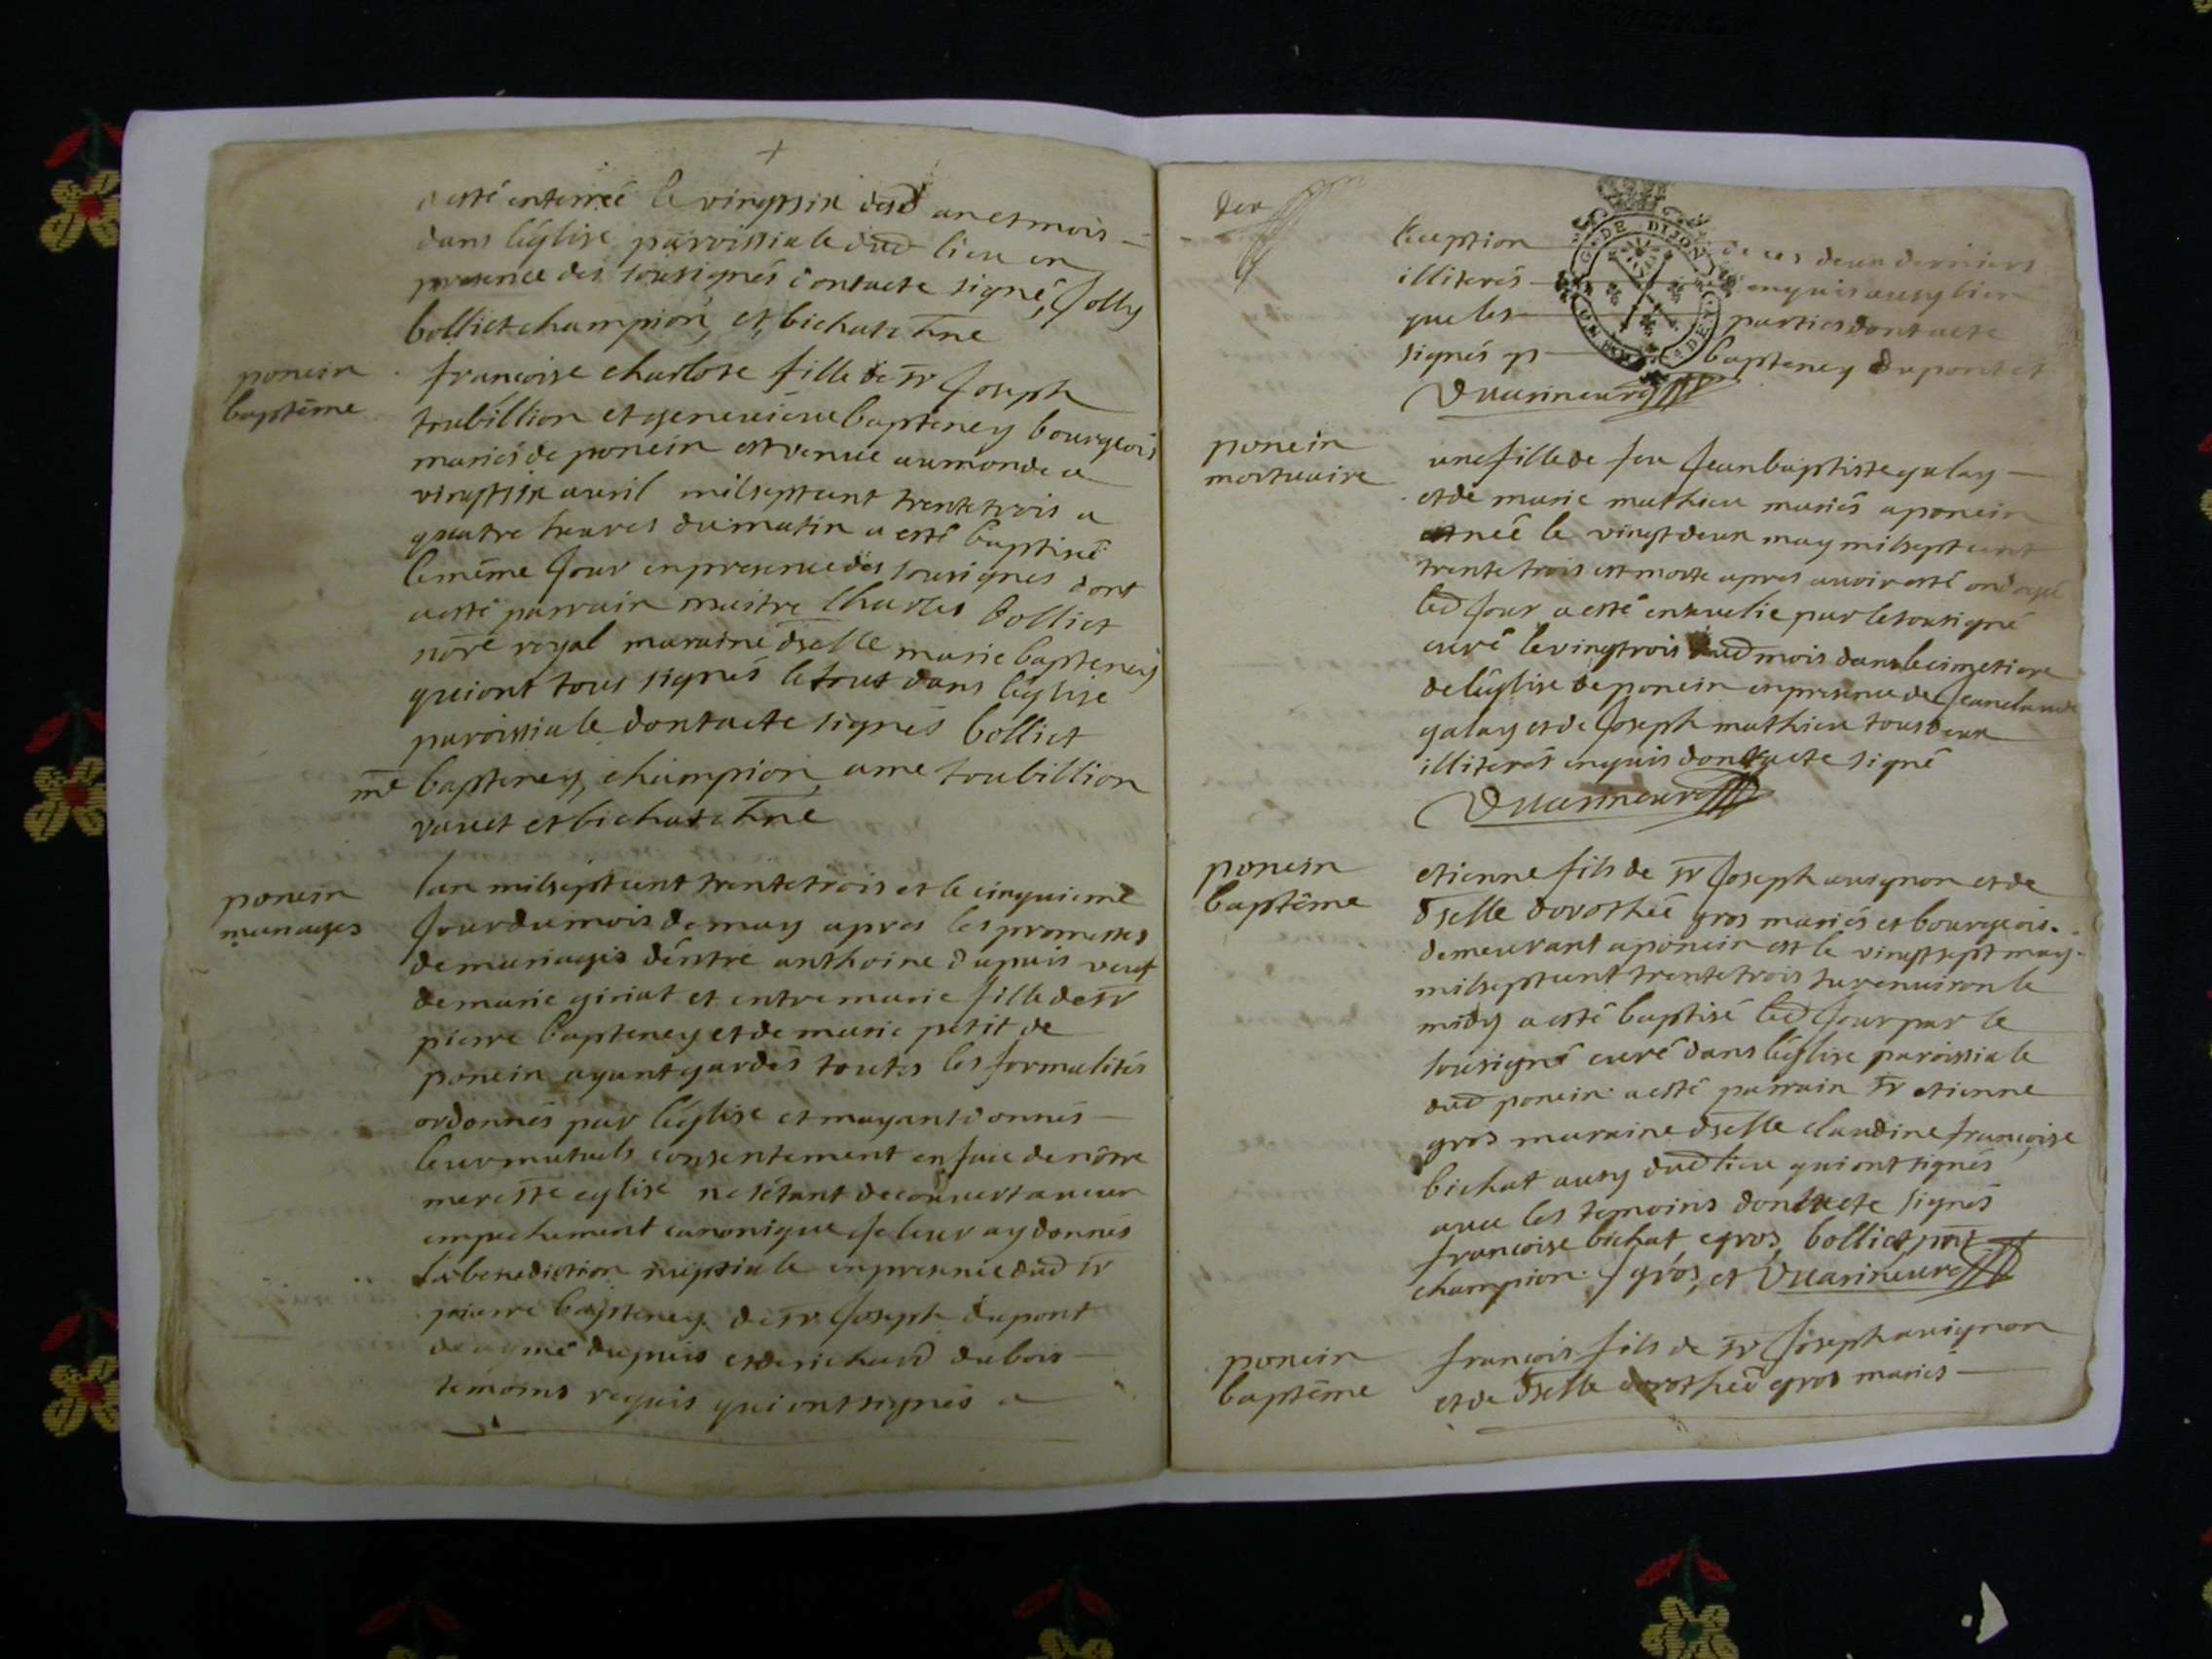 +
a esté enterrée le vingtsix desd an et mois
dans l'église paroissiale dud lieu en
presence des sousignés dont acte signé, Jolly
bolliet champion, et bichat
ponein
baptême
françoise charlote fille de sr Joseph
toubillion et genevieve bapteney bourgeois
mariés de ponein est venue au monde a
vingtsix avril milseptcent trente trois a
quatre heures du matin a esté baptisé
le même Jour en presence des sousignes dont
a esté parrain maitre Charles bolliet
nore royal maraine dselle marie bapteney
qui ont tous signés le tout dans l'église
paroissiale dont acte signés bolliet
me bapteney, champion, ame toubillion
et bichat
ponein
mariages
lan milseptcent trente trois et le cinquieme
Jour du mois de may apres les promesses
de mariages d'entre anthoine dupuis veuf
de marie giriat et entre marie fille de sr
pierre bapteney et de marie petit de
ponein ayant gardés toutes les formalités
ordonnés par l'église et mayant donnés
leur mutuels consentement en face de nôtre
mere ste eglise ne s'étant decouvert aucun
empechement canonique Je leur ay donnés
la benediction nuptiale en presence dud sr
pierre bapteney de sr Joseph dupont
de aymé dupuis et de richard dubois
temoins requis qui ont signés a
leception de ces deux derniers
illiterés enquis ausy bien
que les parties dont acte
signés bapteney dupont et
DE DIJON
ponein
mortuaire
une fille de feu Jean baptiste galay
et de marie mathieu mariés a ponein
est neé le vingtdeux may milseptcent
trente trois est morte apres avoir esté ondoyé
led Jour a esté ensevelie par le sousigné
curé le vingtrois dud mois dans le cimetiere
de l'église de ponein en presence de Jean claude
galay et de Joseph mathieu tous deux
illiterés enquis dont acte signé
ponein
baptême
etienne fils de sr Joseph avignon et de
dselle dorothée gros mariés et bourgeois
demeurant a ponein est le vingtsept may
milseptcent trente trois sur environ le
midy a esté baptisé led Jour par le
sousigné curé dans l'église paroissiale
dud ponein a esté parrain sr etienne
gros maraine dselle claudine françoise
bichat ausy dud lieu qui ont signés
avec les temoins dont acte signés
francoise bichat, egros, bolliet
champion J gros, et
ponein
baptême
françois fils de sr Joseph avignon
et de dselle dorothée gros mariés